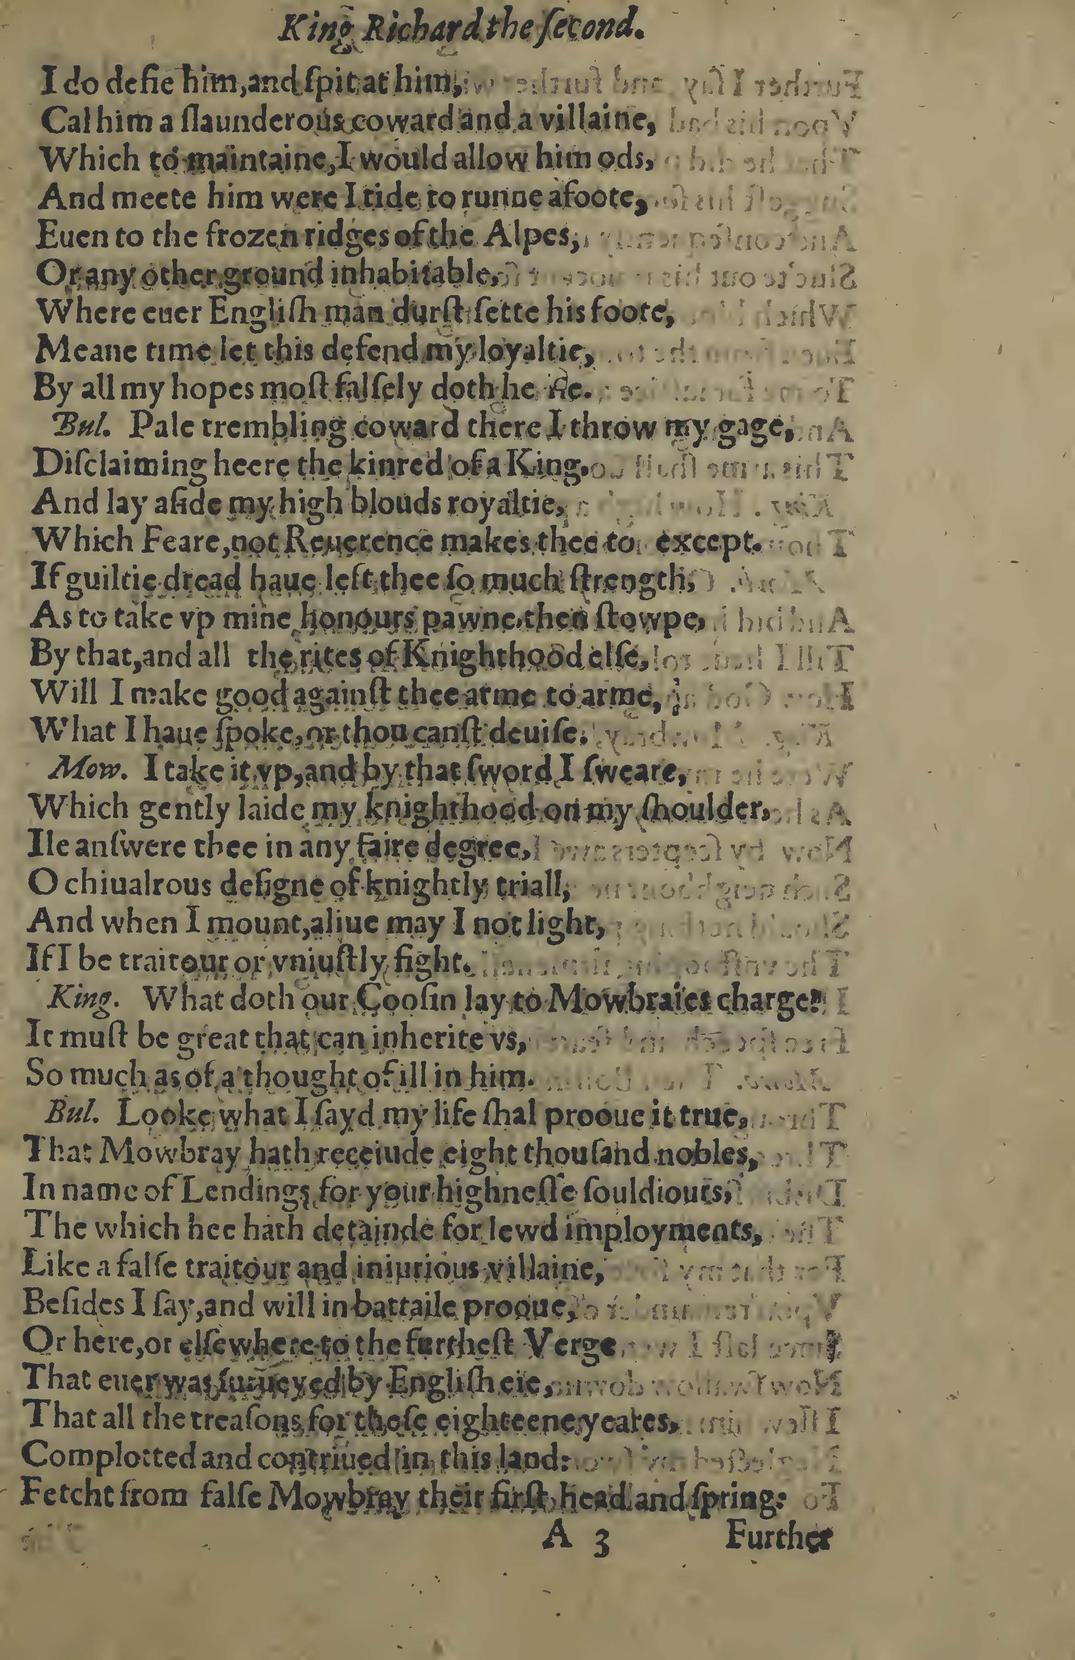 King Richard the ſecond.
I do defie him, and ſpit at him,
Cal him a ſlaunderous coward and a villaine,
Which to maintaine, I would allow him ods,
And meete him were I tide to runne afoote,
Euen to the frozen ridges of the Alpes,
Or any other ground inhabitable,
Where euer Engliſh man durſt ſette his foote,
Meane time let this defend my loyaltie,
By all my hopes moſt falſely doth he lie.
Bul. Pale trembling coward there I throw my gage,
Diſclaiming heere the kinred of a King,
And lay aſide my high blouds royaltie,
Which Feare, not Reuerence makes thee to except.
If guiltie dread haue left thee ſo much ſtrength,
As to take vp mine honours pawne, then ſtowpe,
By that, and all the rites of Knighthood elſe,
Will I make good againſt thee arme to arme,
What I haue ſpoke, or thou canſt deuiſe.
Mow. I take it vp, and by that ſword I ſweare,
Which gently laide my knighthood on my ſhoulder,
Ile anſwere thee in any faire degree,
O chiualrous deſigne of knightly triall,
And when I mount, aliue may I not light,
If I be traitour or vniuſtly fight.
King. What doth our Cooſin lay to Mowbraies charge?
It muſt be great that can inherite vs,
So much as of a thought of ill in him.
Bul. Looke what I ſayd my life ſhal prooue it true,
That Mowbray hath receiude eight thouſand nobles,
In name of Lendings for your highneſſe ſouldiours,
The which hee hath detainde for lewd imployments,
Like a falſe traitour and iniurious villaine,
Beſides I ſay, and will in battaile prooue,
Or here, or elſewhere to the furtheſt Verge
That euer was ſurueyed by Engliſh eie,
That all the treaſons for theſe eighteene yeares,
Complotted and contriued in this land:
Fetcht from falſe Mowbray their firſt head and ſpring:
A 3 Further